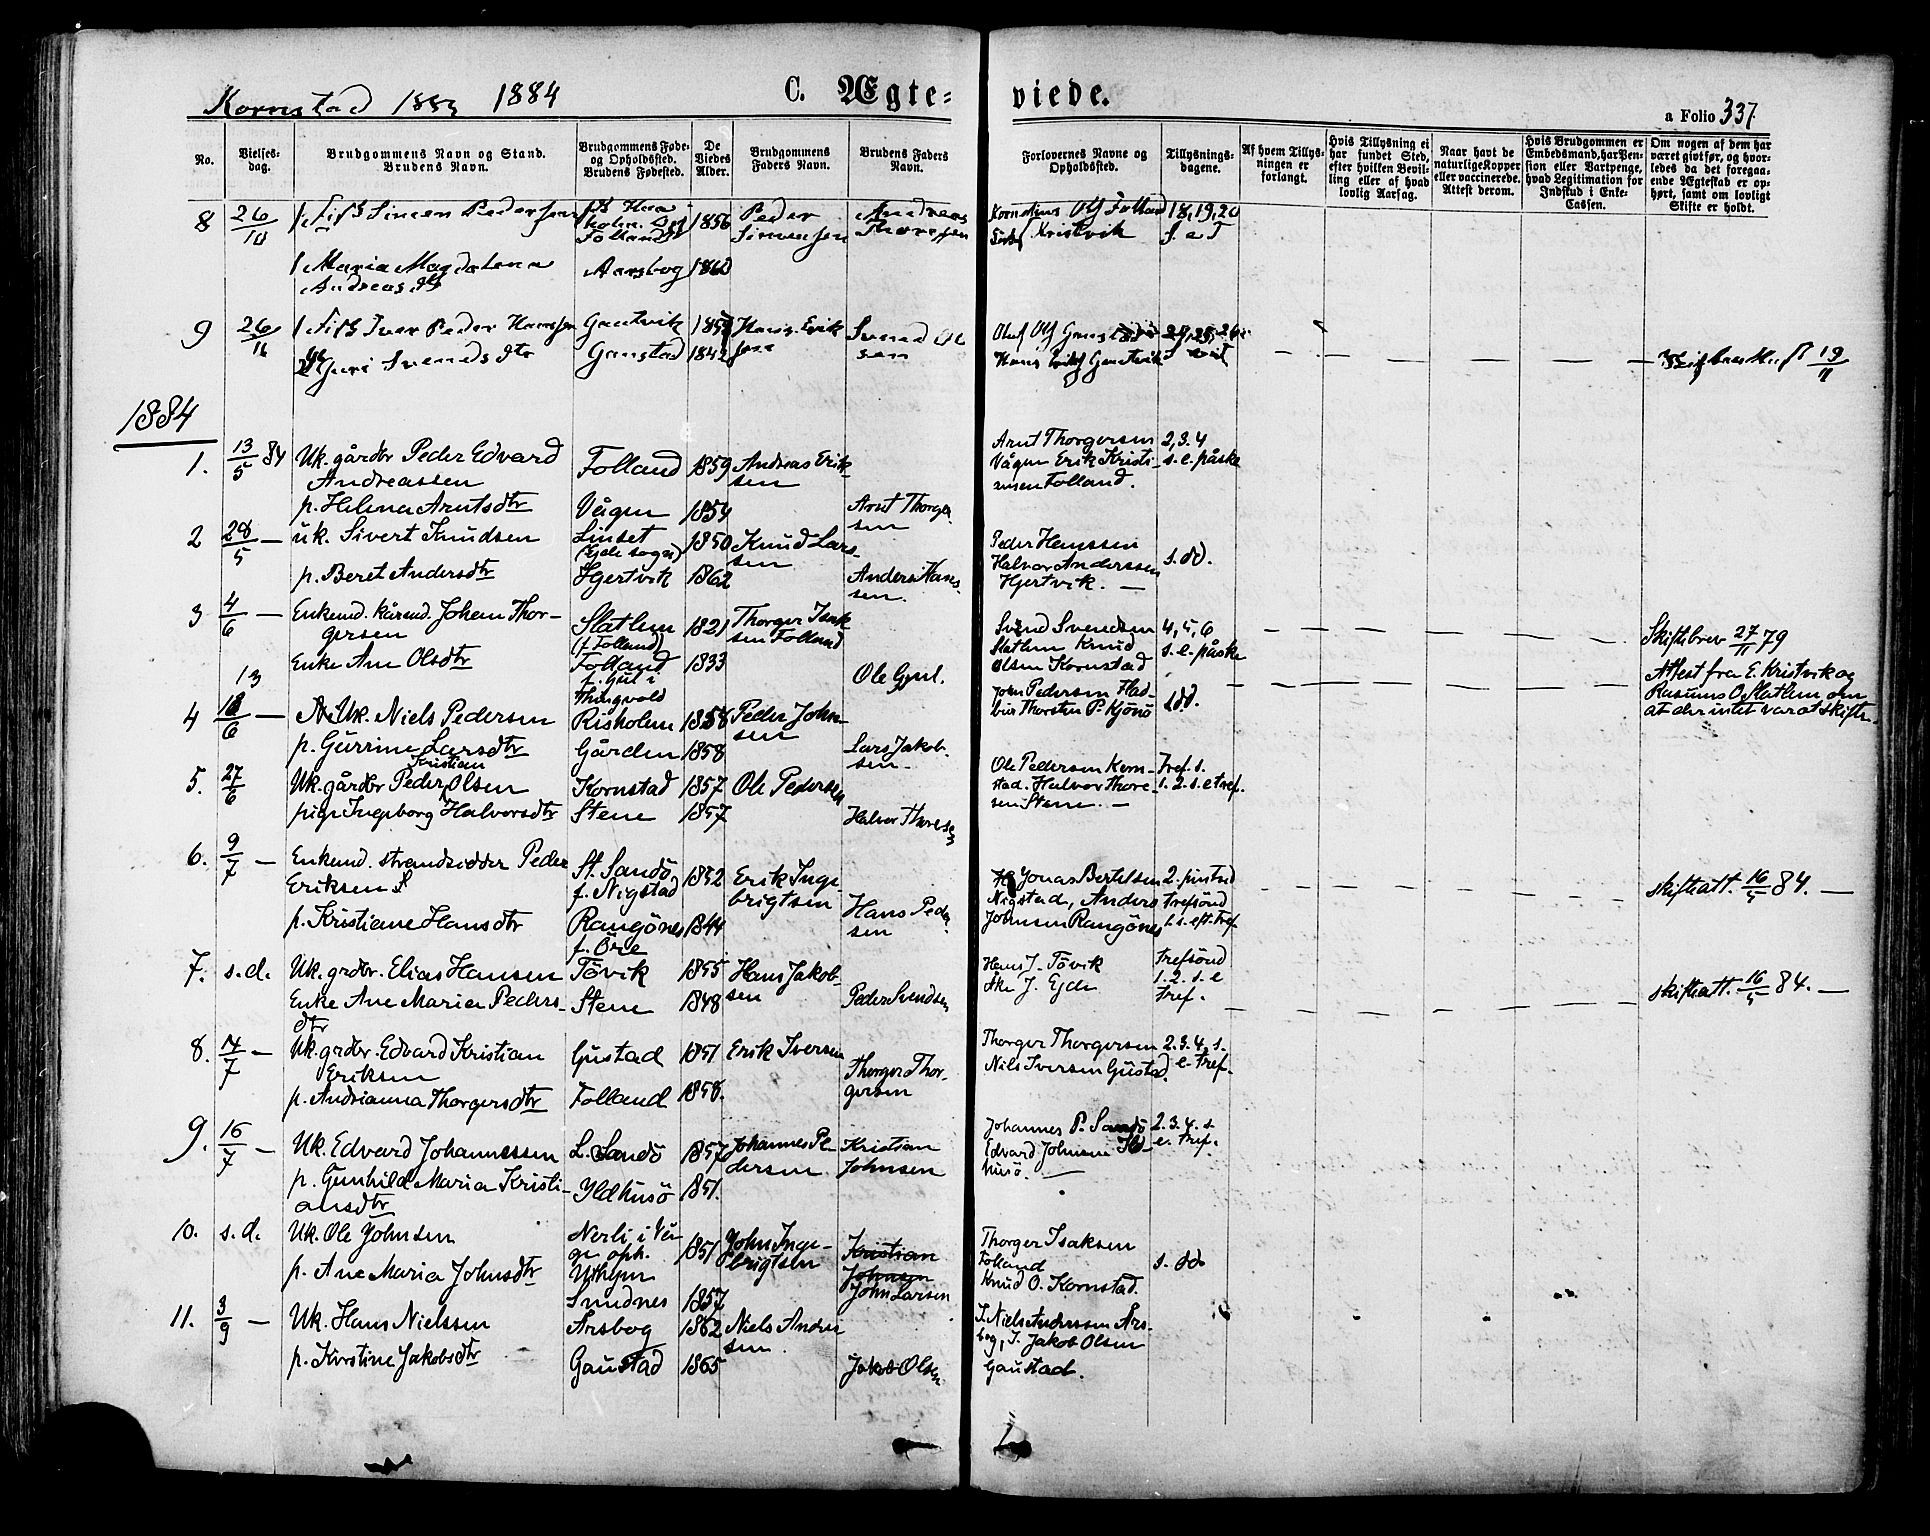 Kornstad 1883 1884
C. Ægteviede.
a Folio 337.
No.
Vielsesdag.
Brudgommens Navn og Stand.
Brudens Navn.
Brudgommens Føde- og Opholdssted.
Brudens Fødested.
De Viedes Alder.
Brudgommens Faders Navn.
Brudens Faders Navn.
Forlovernes Navne og Opholdssted.
Tillysningsdagene.
Af hvem Tillysningen er forlangt.
Hvis Tillysning ei har fundet Sted, efter hvilken Bevilling eller af hvad lovlig Aarsag.
Naar havt de naturlige Kopper eller vaccinerede. Attest derom.
Hvis Brudgommen er Embedsmand, har Pension eller Vartpenge, hvad Legitimation for Indskud i Enke-Cassen.
Om nogen af dem har været gift før, og hvorledes da det foregaaende Ægteskab er ophørt, samt om lovligt Skifte er holdt.
8 26/10 Simen Pedersen 1856 Peder Simensen Andreas Thoresen Kristvik 18, 19, 20
Maria Magdalena Andreasdtr Aarsbog 1860
9 26/11 Iver Peder Hanssen Gautvik Hans Erik sen Svend Ol sen
Guri Svendsdtr Gaustad 1842 Hans Gautvik 19/11
1884
1. 13/5 84 Uk. gårdbr Peder Edvard Andreassen Folland 1859 Andreas Eriksen Arnt Thorgersen Vågen Erik Kristiansen Folland. 2, 3. 4 s. e. påske
p. Helena Arntsdtr Vågen 1854 Arnt Thorgersen
2 28/5 — uk. Sivert Knudsen Linset (Ejde sogn) 1850 Knud Larssen Peder Hanssen Halvor Anderssen Hjertvik. — s. dd.
p. Beret Andersdtr Hjertvik 1862 Anders Hanssen.
3 4/6 — Enkemd. kårmd. Johan Thorgersen Slatlem (f. Folland) 1821 Thorger Isaksen Folland Svend Svendsen Slatlem Knud Olsen Kornstad 4, 5, 6 s. e. påske Skiftebrev 27/11 79
Enke Ane Olsdtr Folland f. Gul i Thingvold 1833 Ole Gjul. Attest fra E. Kristvik og Rasmus O. Slatlem om at der intet var at skifte.
4 13/6 — Uk. Niels Pedersen Risholem 1858 Peder Johnsen John Pedersen Thorsten P. Kjönö s dd.
p. Gurrine Larsdtr Gården 1858 Lars Jakobsen.
5. 27/6 Uk. gårdbr Peder Kristian Olsen Kornstad 1857 Ole Pedersen Ole Pedersen Kornstad. Halvor Thoresen Stene. — Tref. s. 1. 2. s. e tref.
pige Ingeborg Halvorsdtr Stene 1857 Halvor Thoresen
6. 9/7 — Enkemd. strandsidder Peder Eriksen St. Sandö f. Nigstad 1852 Erik Ingebrigtsen Jonas Bertelsen Nigstad, Anders Johnsen Rangönes 2. pintsd trefsönd 1. s. eft. tref. skifteatt. 16/5 84. —
p. Kristiane Hansdtr Rangönes f. Öre 1844 Hans Pedersen
7. s. d. Uk. grdbr. Elias Hansen Tövik 1855 Hans Jakobsen Hans J. Tövik J. Ejde trefsönd 1. 2. s. e tref.
Enke Ane Maria Pedersdtr Stene 1848 Peder Svendsen skifteatt. 16/5 84. —
8. 14/7 — Uk. grdbr. Edvard Kristian Eriksen Gustad 1851 Erik Iversen Thorger Thorgersen Nils Iversen Gustad. 2. 3. 4, s. e. tref.
p. Andrianna Thorgersdtr Folland 1858. Thorger Thorgersen
9. 16/7 Uk. Edvard Johannessen L. Sandö 1857 Johannes Pedersen Kristian Johnsen Johannes P. Sandö Edvard Johnsen 2. 3. 4. s. e. tref.
p. Gunhild Maria Kristiansdtr Yldhusö 1851.
10. s. d. Uk. Ole Johnsen 1851 John Ingebrigtsen Kristian Johnsen Thorger Isaksen Folland Knud O. Kornstad. s. dd.
p. Ane Maria Johnsdtr Smidnes 1857 John Larsen
11. 3/9 — Uk. Hans Nielssen Arsbog 1862 Niels Anderssen. J. Niels Anderssen Arsbog, J. Jakob Olsen Gaustad.
p. Kirstine Jakobsdtr Gaustad 1865 Jakob Olsen